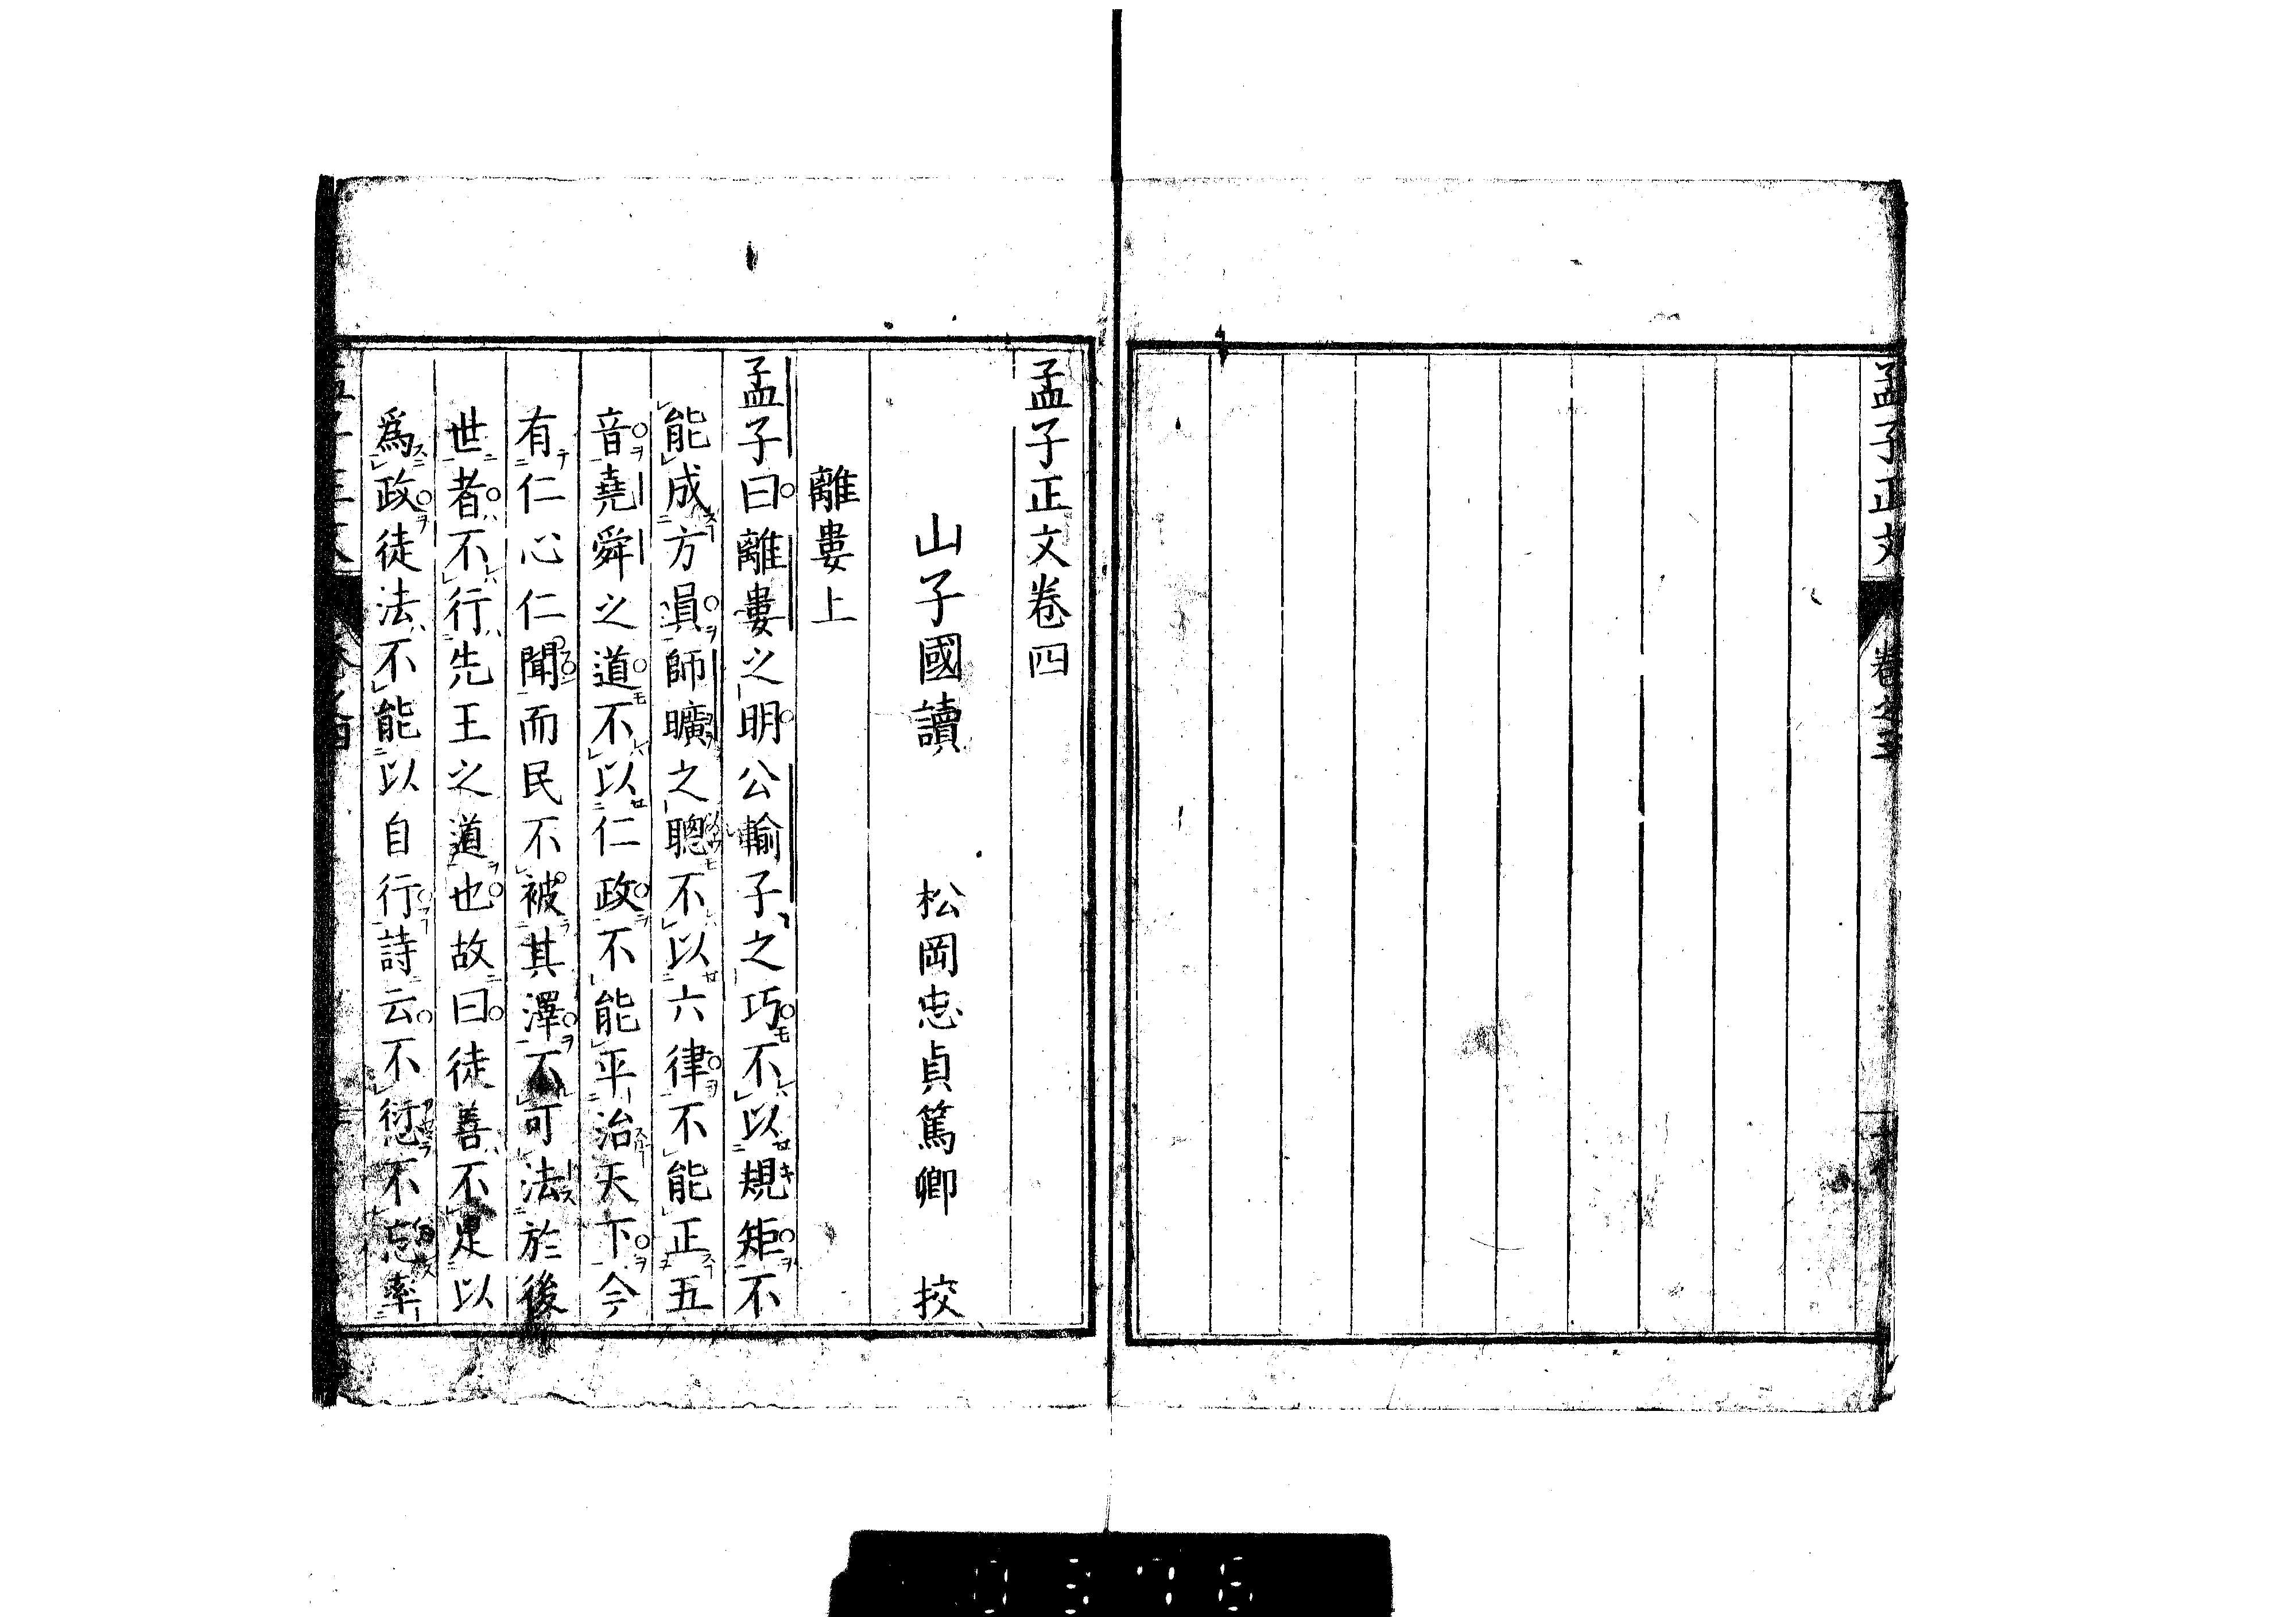 孟子正文 卷之三
孟子正文卷四
山子國讀 松岡忠貞篤卿 挍
離婁上
孟子曰離婁之明公輸子之巧不以規矩不
能成方員師曠之聰不以六律不能正五
音堯舜之道不以仁政不能平治天下今
有仁心仁聞而民不被其澤不可法於後
世者不行先王之道也故曰徒善不足以
爲政徒法不能以自行詩云不愆不忘率
0376